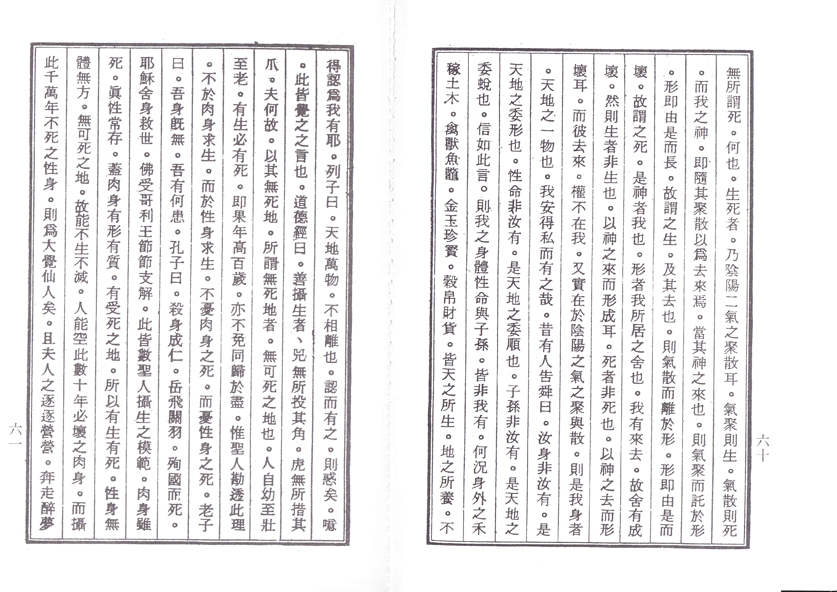 無所謂死。何也。生死者。乃陰陽二氣之聚散耳。氣聚則生。氣散則死
。而我之神。即隨其聚散以爲去來焉。當其神之來也。則氣聚而託於形
。形即由是而長。故謂之生。及其去也。則氣散而離於形。形即由是而
壞。故謂之死。是神者我也。形者我所居之舍也。我有來去。故舍有成
壞。然則生者非生也。以神之來而形成耳。死者非死也。以神之去而形
壞耳。而彼去來。權不在我。又實在於陰陽之氣之聚與散。則是我身者
。天地之一物也。我安得私而有之哉。昔有人告舜曰。汝身非汝有。是
天地之委形也。性命非汝有。是天地之委順也。子孫非汝有。是天地之
委蛻也。信如此言。則我之身體性命與子孫。皆非我有。何況身外之禾
稼土木。禽獸魚鼈。金玉珍寶。穀帛財貨。皆天之所生。地之所養。不
六十
得認爲我有耶。列子曰。天地萬物。不相離也。認而有之。則惑矣。噫
。此皆覺之之言也。道德經曰。善攝生者、兕無所投其角。虎無所措其
爪。夫何故。以其無死地。所謂無死地者。無可死之地也。人自幼至壯
至老。有生必有死。即果年高百歲。亦不免同歸於盡。惟聖人勘透此理
。不於肉身求生。而於性身求生。不憂肉身之死。而憂性身之死。老子
曰。吾身既無。吾有何患。孔子曰。殺身成仁。岳飛關羽。殉國而死。
耶穌舍身救世。佛受哥利王節節支解。此皆數聖人攝生之模範。肉身雖
死。眞性常存。蓋肉身有形有質。有受死之地。所以有生有死。性身無
體無方。無可死之地。故能不生不滅。人能空此數十年必壞之肉身。而攝
此千萬年不死之性身。則爲大覺仙人矣。且夫人之逐逐營營。奔走醉夢
六一